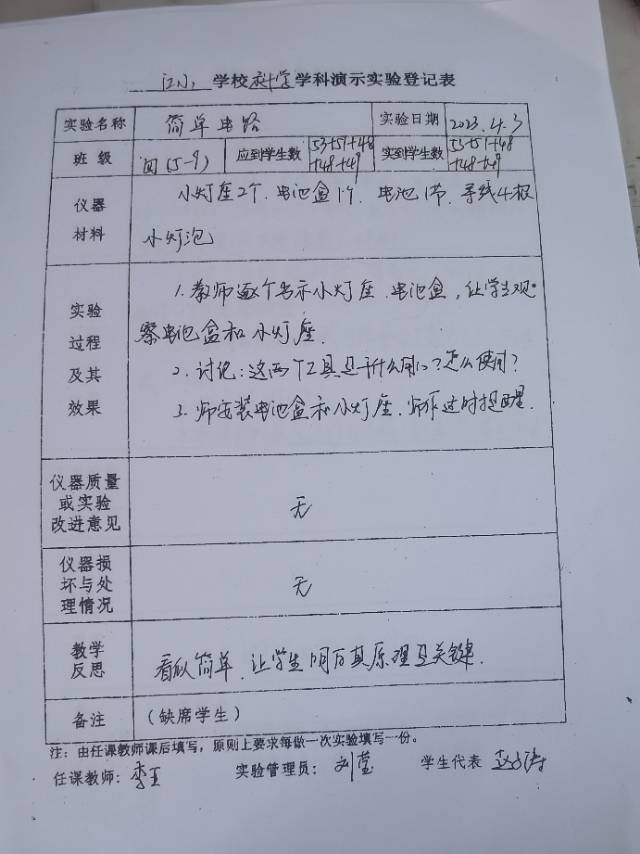 江小 学校科学学科演示实验登记表
实验名称 简单电路 实验日期 2023.4.3
班级 四(5-9) 应到学生数 53+51+48+48+49 实到学生数 53+51+48+48+49
仪器材料 小灯座2个、电池盒1个、电池1节、导线4根
小灯泡
实验过程及其效果
1.教师逐个出示小灯座、电池盒,让学生观
察电池盒和小灯座.
2.讨论:这两个工具是干什么用的?怎么使用?
3.师安装电池盒和小灯座.师 适时提醒.
仪器质量或实验改进意见 无
仪器损坏与处理情况 无
教学反思 看似简单、让学生明白其原理是关键.
备注 (缺席学生)
注:由任课教师课后填写,原则上要求每做一次实验填写一份。
任课教师:李王 实验管理员:刘莹 学生代表